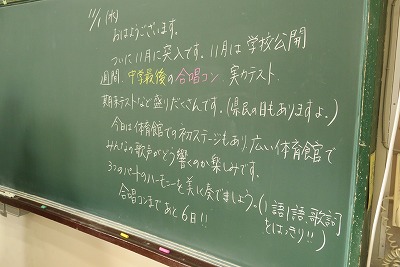 11/1(水)
おはようございます。
ついに11月に突入です。11月は学校公開
週間、中学最後の合唱コン、実力テスト、
期末テストなど盛りだくさんです。(県民の日もありますよ。)
今日は体育館での初ステージもあり、広い体育館で
みんなの歌声がどう響くのか楽しみです。
3つのパートのハーモニーを美しく奏でましょう。(1語1語歌詞
とはっきり!!)
合唱コンまであと6日!!